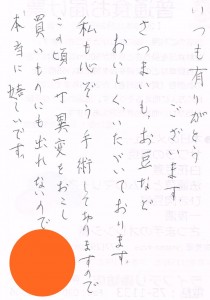 いつも有りがとう
ございます。
さつまいも、お豆など
おいしく、いただいております。
私も心ぞう手術しておりますので
この頃一寸異変をおこし
買いものにも出れないので
本当に嬉しいです。